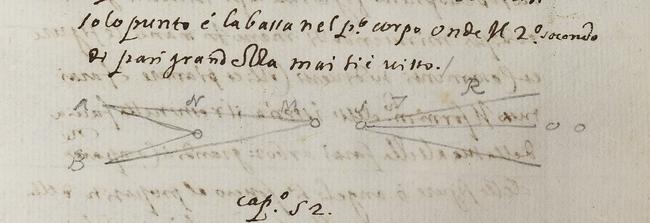 solo punto é la bassa nel p.º corpo onde Il 2.º secondo
di pari grandezza mai si è visto.
A N M T R
B
cap.º 52.